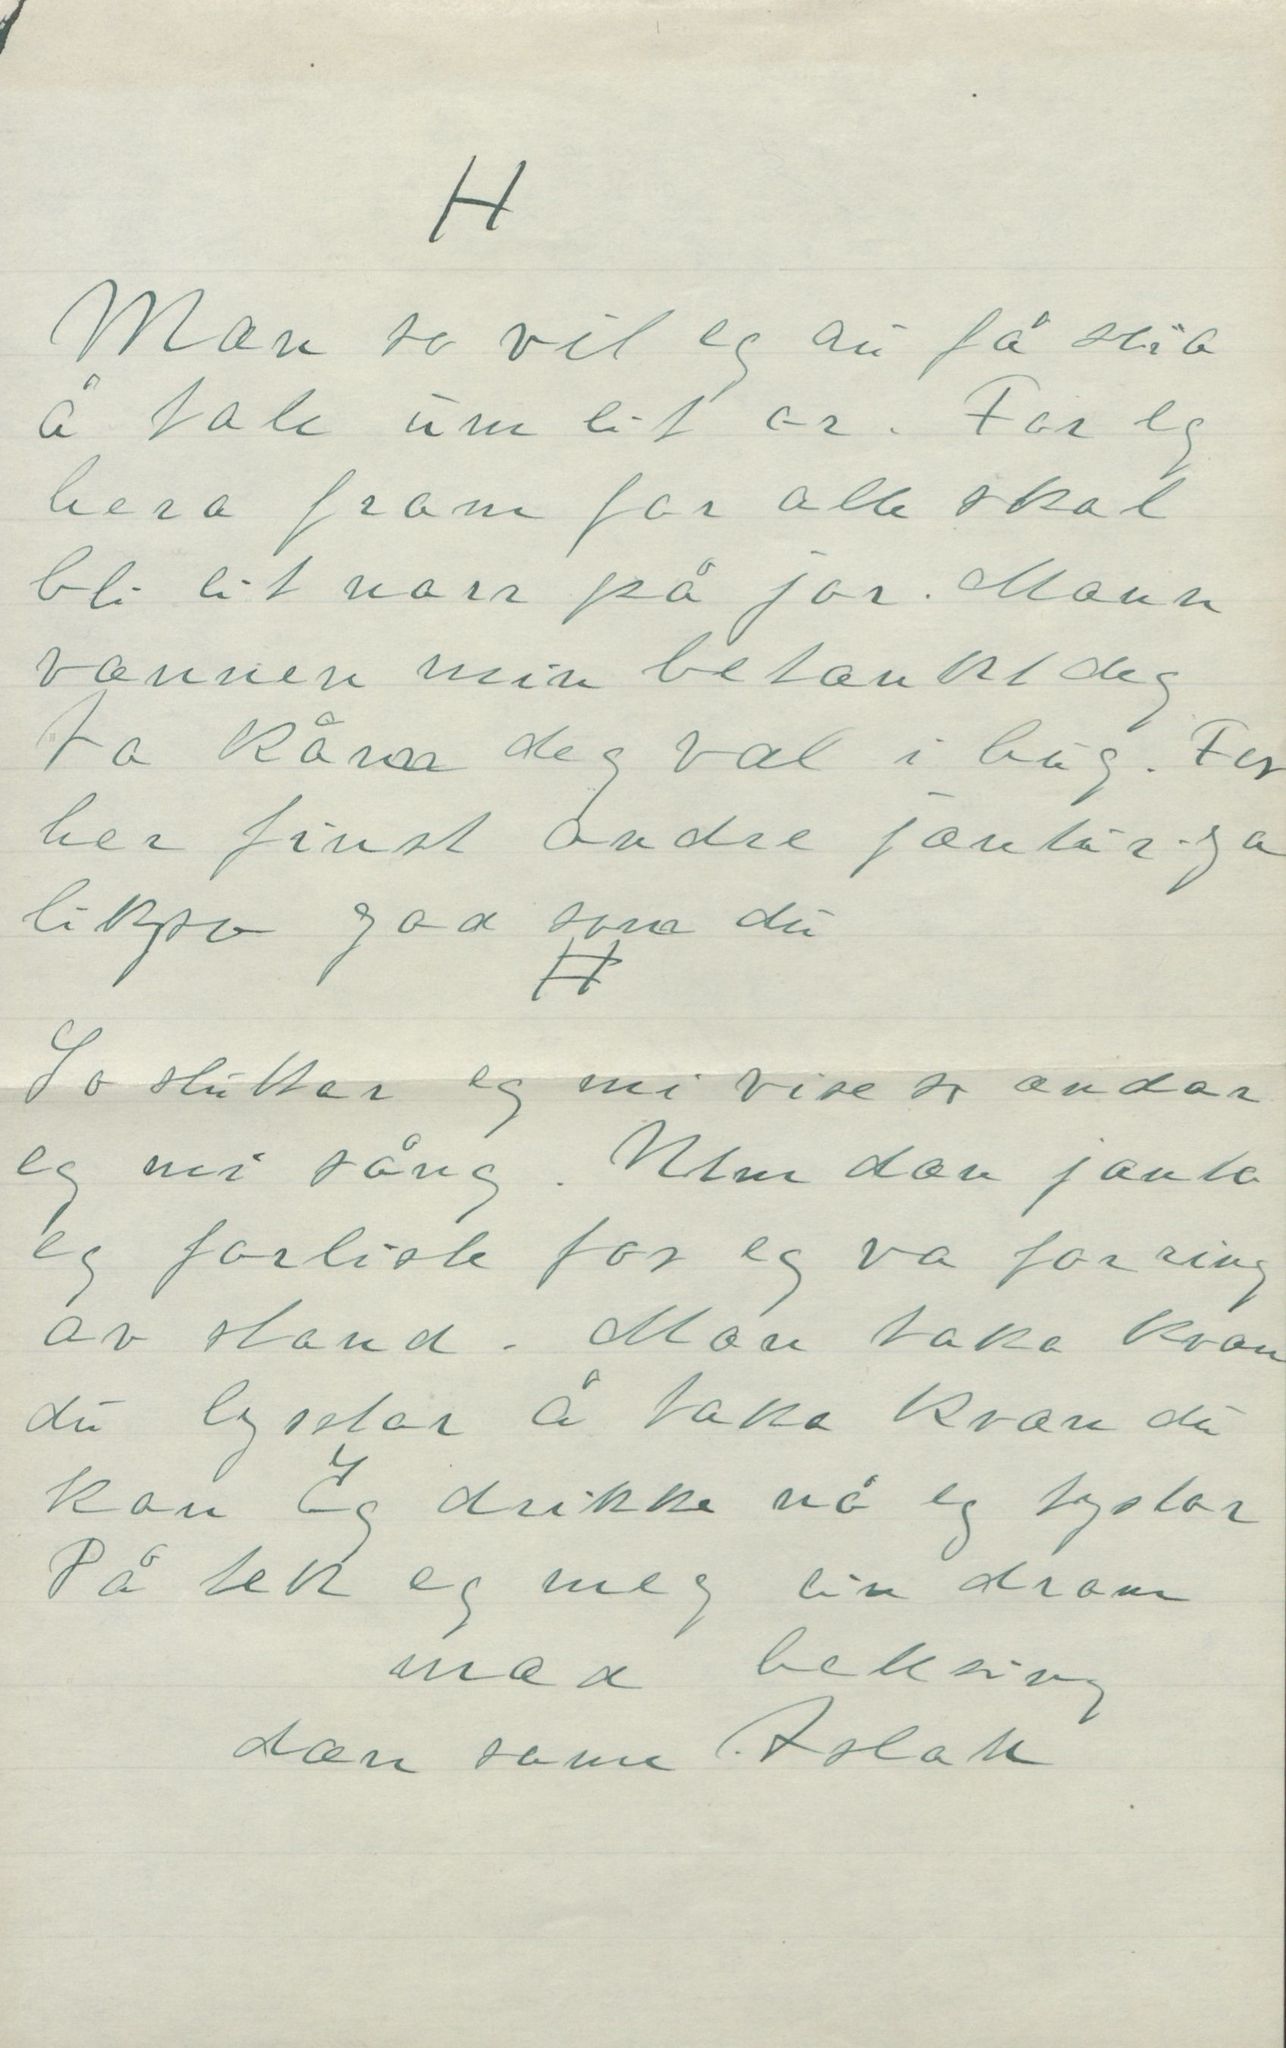 H
Mæn so vil eg nu få snia
å tale um eit or. For eg
hera fram for alle skal
bli eit narr på jor. Mænn
vænnen min betænkt deg
ta kåmm deg væl i hug. For
her finst andre jæntur ga
likso goa som du
H
So sluttar eg mi vise so ændar
eg mi sång. Um dæn jænta
eg forliste for eg va for ring
av stand. Mæn taka kvæn
du lystar å taka kvæn du
kan Eg drikke nå eg tystar
På tek eg meg ein dram
mæ helsing
dæn same Aslak